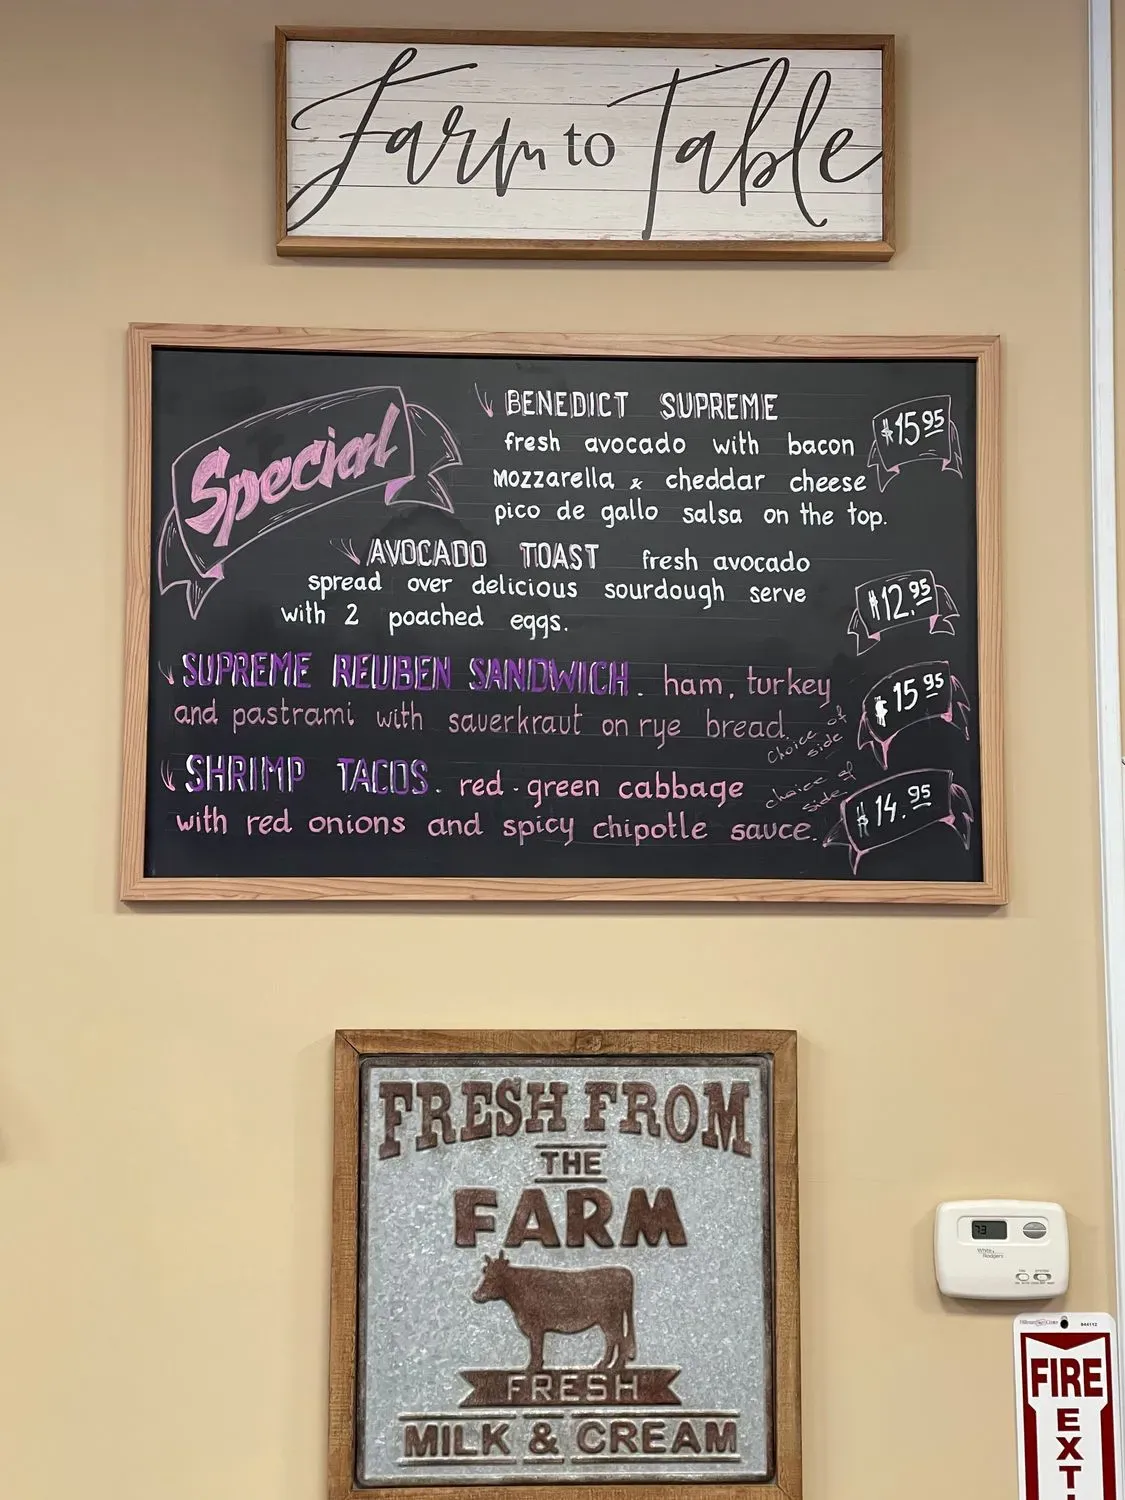 Farm to Table
Special
BENEDICT SUPREME
fresh avocado with bacon
mozzarella & cheddar cheese
pico de gallo salsa on the top.
$15.95
AVOCADO TOAST fresh avocado
spread over delicious sourdough serve
with 2 poached eggs.
$12.95
SUPREME REUBEN SANDWICH. ham, turkey
and pastrami with sauerkraut on rye bread.
choice of
side
$15.95
SHRIMP TACOS. red-green cabbage
with red onions and spicy chipotle sauce.
choice of
side
$14.95
FRESH FROM
THE
FARM
FRESH
MILK & CREAM
73
White
Rodgers
FIRE
EXT